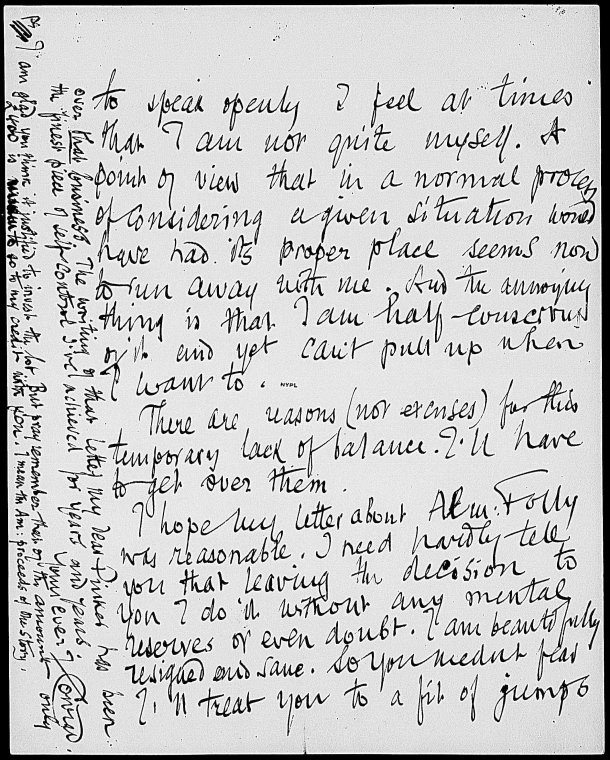 to speak openly I feel at times
that I am not quite myself. A
point of view that in a normal process
of considering a given situation would
have had its proper place seems now
to run away with me. And the annoying
thing is that I am half-conscious
of it and yet can't pull up when
I want to.
NYPL
There are reasons (not excuses) for this
temporary lack of balance. I'll have
to get over them.
I hope my letter about Alm: Folly
was reasonable. I need hardly tell
you that leaving the decision to
you I do it without any mental
reserves or even doubt. I am beautifully
resigned and sane. So you needn't fear
I'll treat you to a fit of jumps
over that business. The writing of that letter my dear Pinker has been
the finest piece of self-control I've achieved for years and years.
Yours ever J. Conrad.
PS
I am glad you think it justified to invest the lot. But pray remember that of the amount only
£400 is to go to my credit with you. I mean the Am: proceeds of the story.